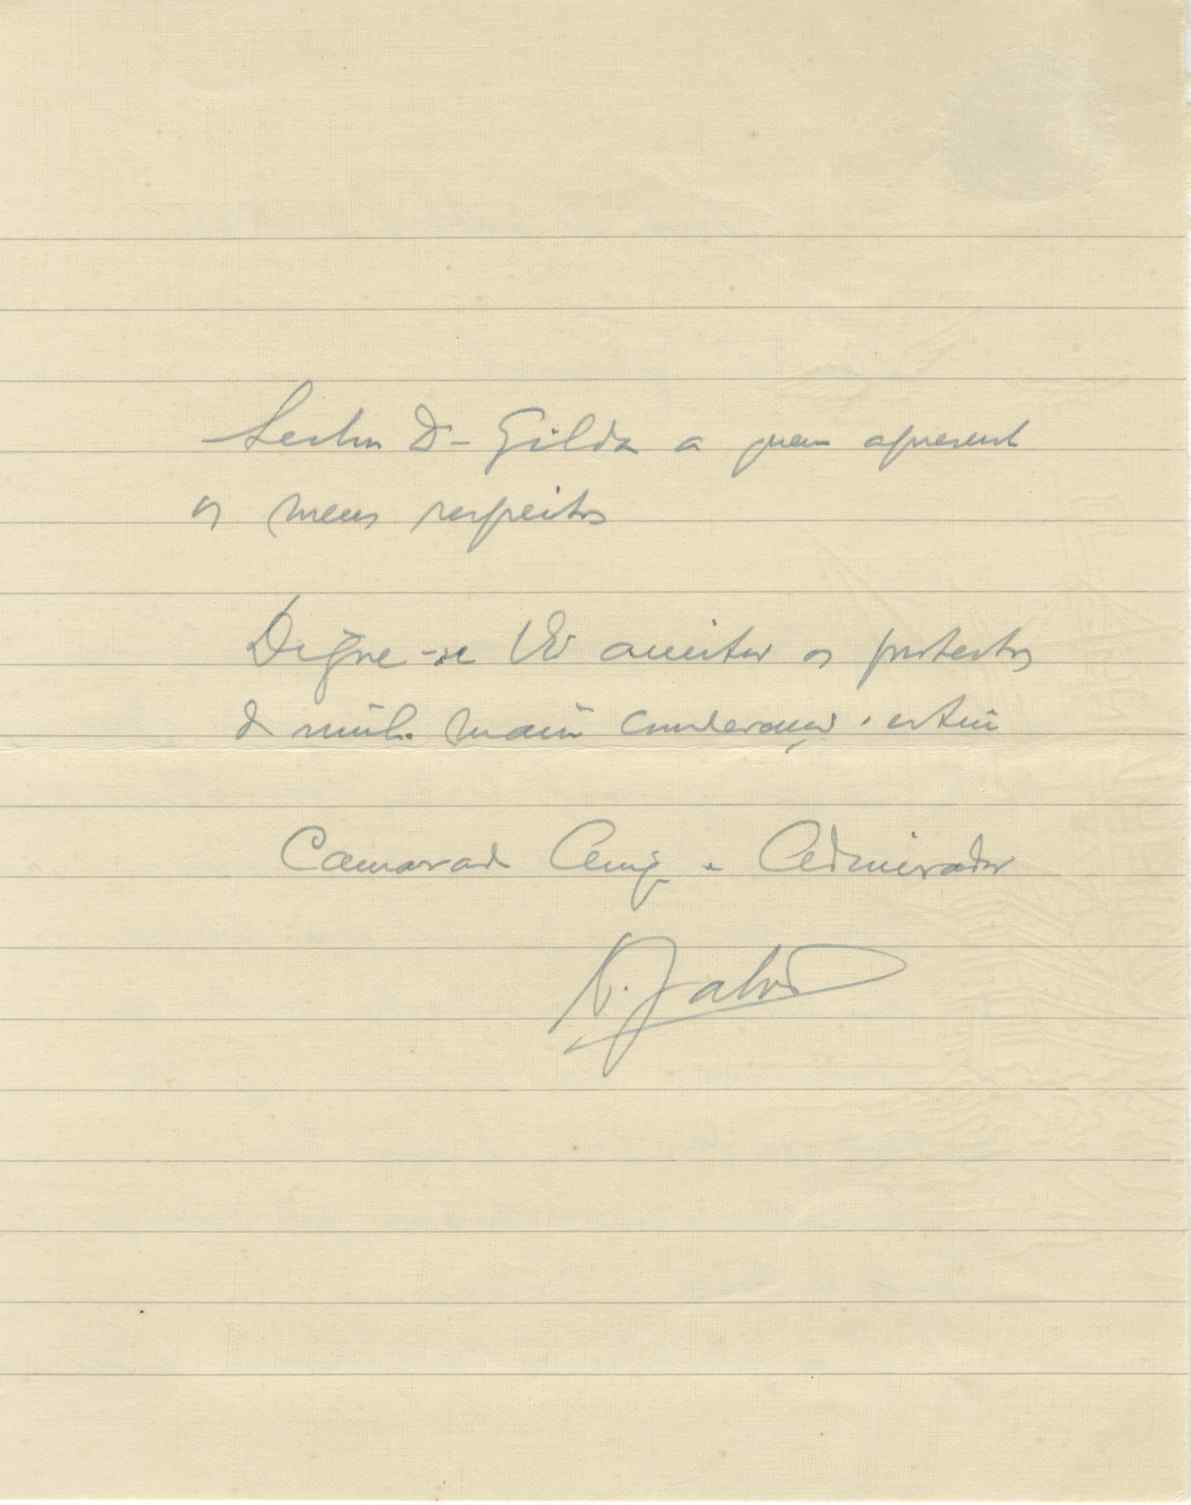 Senhora D. Gilda a quem apresento
os meus respeitos
Digne-se V. aceitar os protestos
de minha maior consideração e estima
Camarada Amigo e Admirador